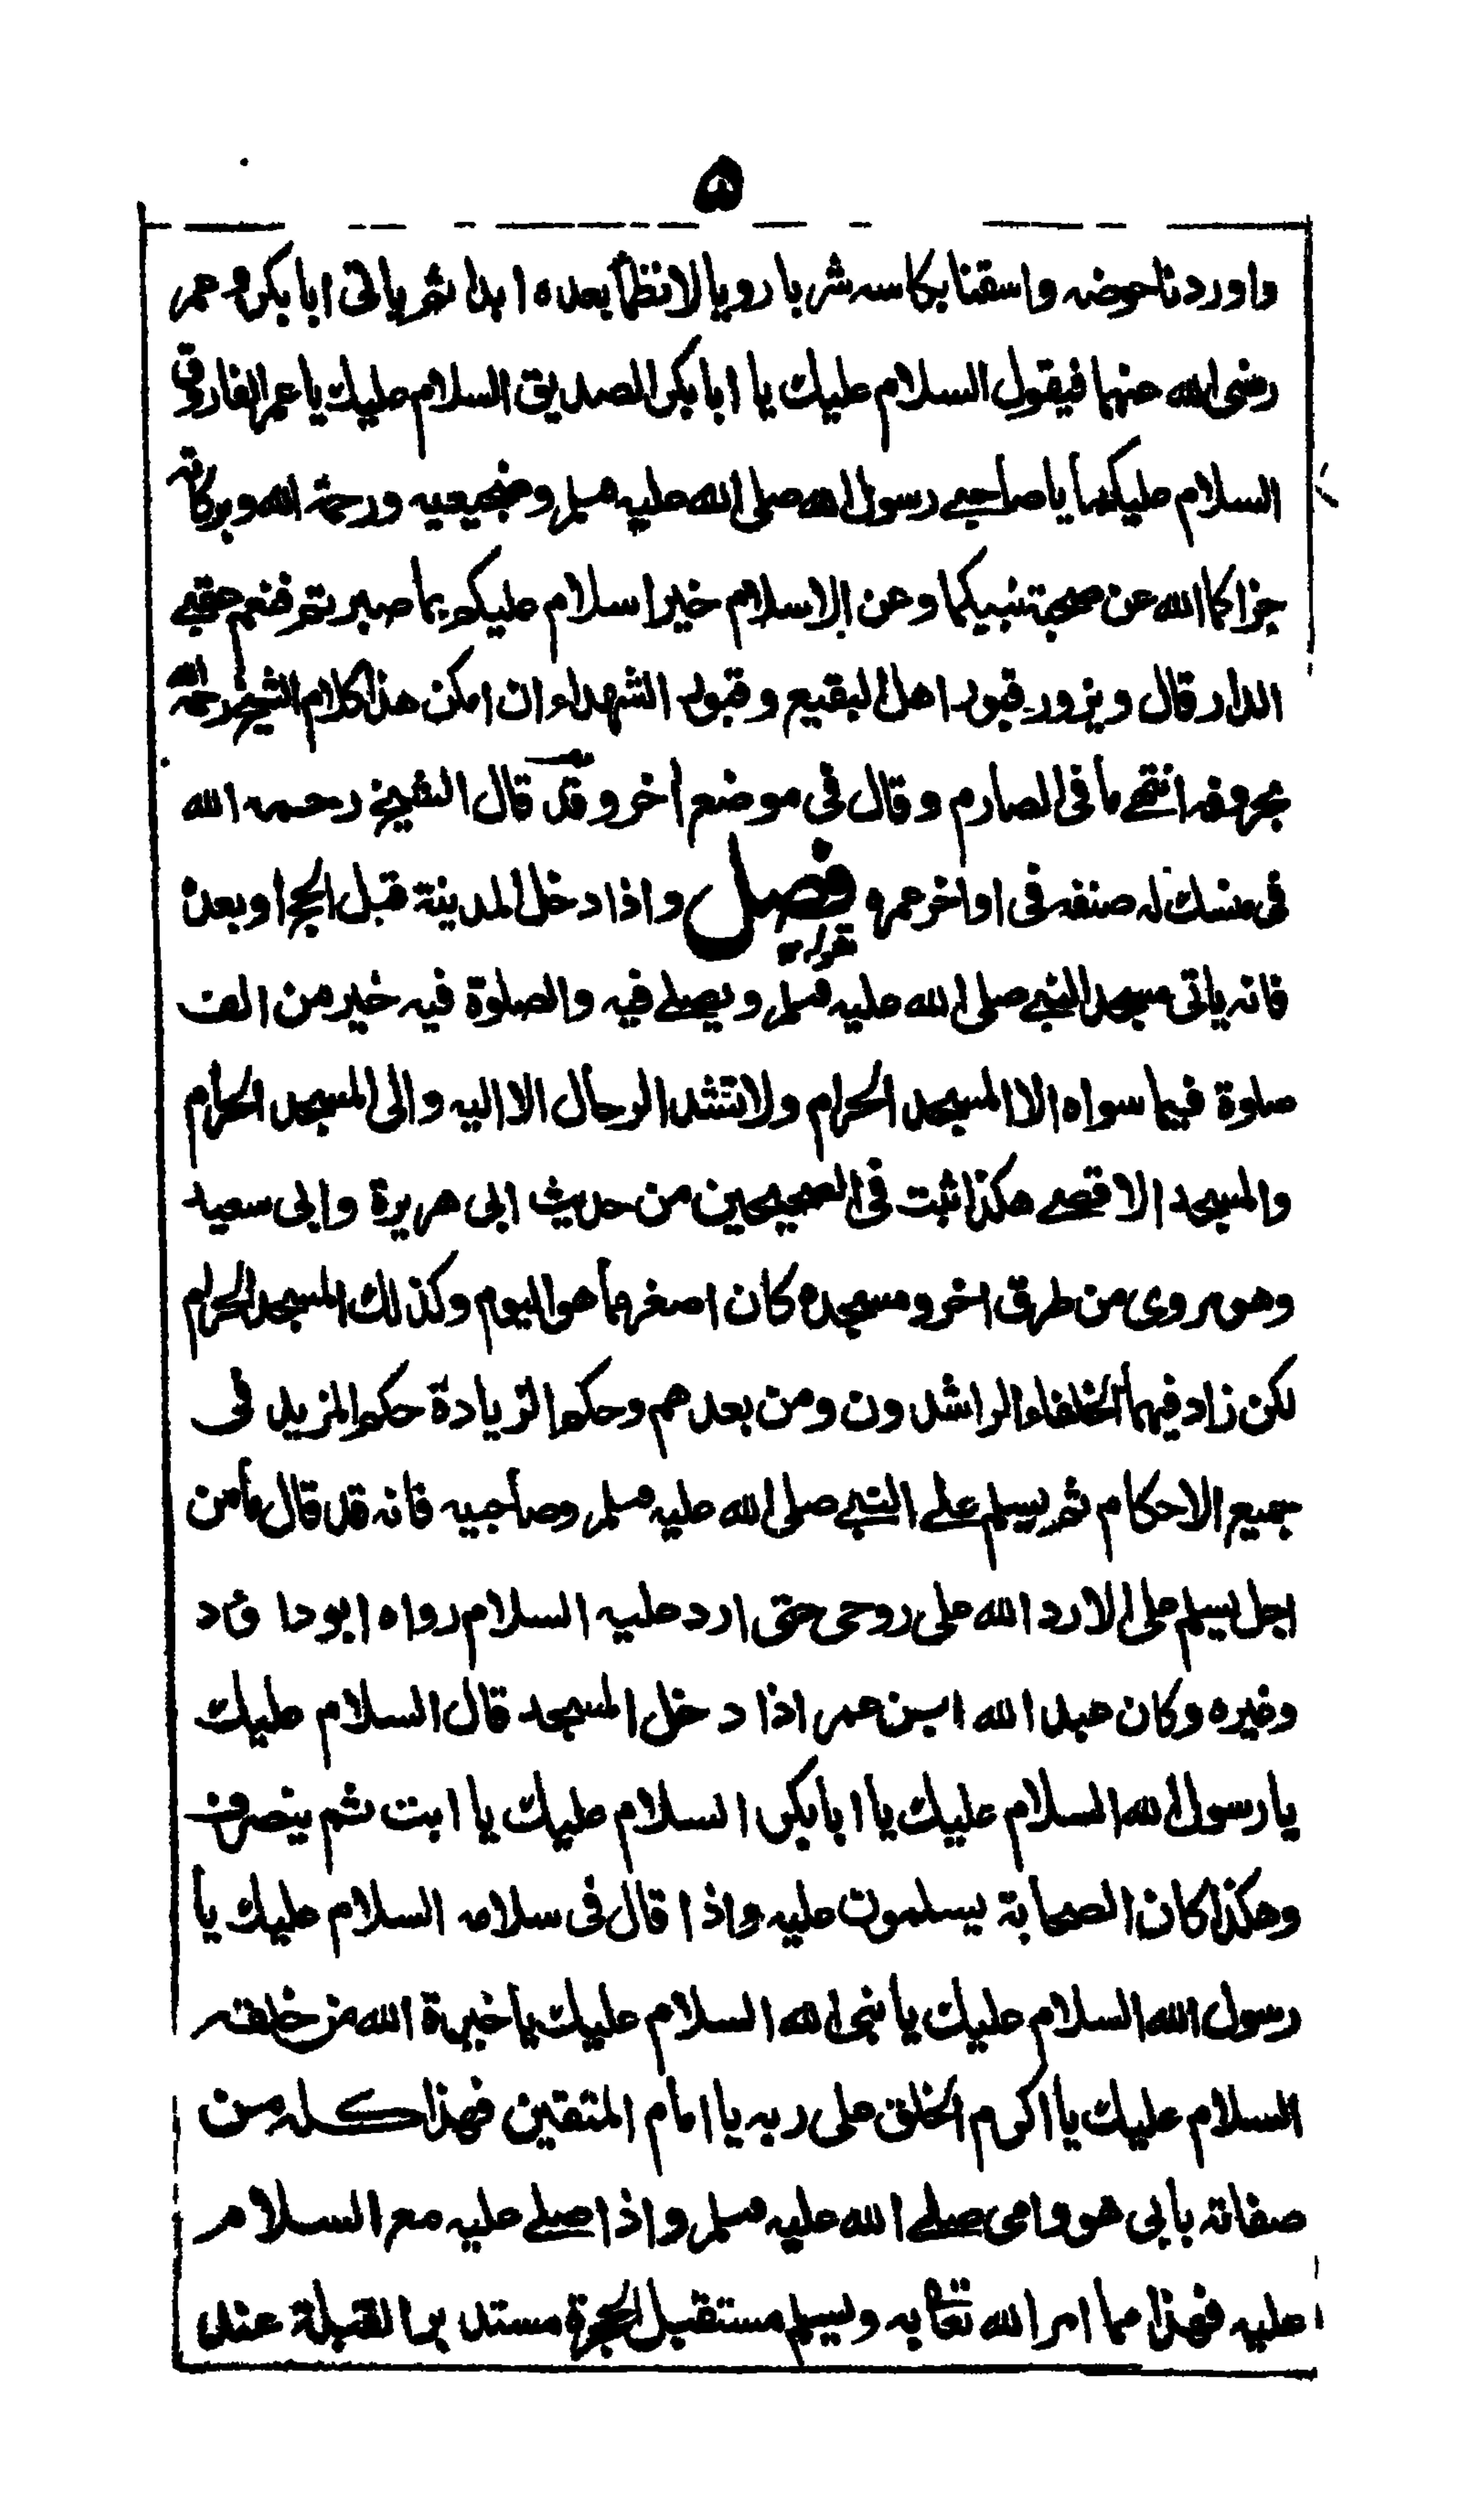 ۵
واوردنا حوضه واسقنا بكاسه شربا رويا لا نظمأ بعده ابدا ثم ياتى ابا بكر و عمر
رضى الله عنهما فيقول السلام عليك يا ابا بكر الصديق السلام عليك يا عمر الفاروق
السلام عليكما يا صاحبى رسول الله صلى الله عليه وسلم وضجيعيه ورحمة الله وبركاته
جزاكما الله عن صحبة نبيكما وعن الاسلام خيرا سلام عليكم بما صبرتم فنعم عقبى
الدار قال ويزور قبور اهل البقيع وقبور الشهداء ان امكن هذا كلام الشيخ رحمه الله
بحروفه انتهى ما فى الصارم وقال فى موضع اخر وقد قال الشيخ رحمه الله
فى منسك له صنفه فى اواخر عمره فصل واذا دخل المدينة قبل الحج او بعده
فانه ياتى مسجد النبى صلى الله عليه وسلم ويصلى فيه والصلوة فيه خير من الف
صلوة فيما سواه الا المسجد الحرام ولا تشد الرحال الا اليه والى المسجد الحرام
والمسجد الاقصى هكذا ثبت فى الصحيحين من حديث ابى هريرة وابى سعيد
وهو مروى من طرق اخر ومسجده كان اصغر مما هو اليوم وكذلك المسجد الحرام
لكن زاد فيهما الخلفاء الراشدون ومن بعدهم وحكم الزيادة حكم المزيد فى
جميع الاحكام ثم يسلم على النبى صلى الله عليه وسلم وصاحبيه فانه قد قال ما من
احد يسلم على الا رد الله على روحى حتى ارد عليه السلام رواه ابو داود
وغيره وكان عبد الله ابن عمر اذا دخل المسجد قال السلام عليك
يا رسول الله السلام عليك يا ابا بكر السلام عليك يا ابت ثم ينصرف
وهكذا كان الصحابة يسلمون عليه واذا قال فى سلامه السلام عليك يا
رسول الله السلام عليك يا نبى الله السلام عليك يا خيرة الله من خلقه
السلام عليك يا اكرم الخلق على ربه يا امام المتقين فهذا كله من
صفاته بابى هو وامى صلى الله عليه وسلم واذا صلى عليه مع السلام
عليه فهذا مما امر الله تعالى به ويسلم مستقبل الحجرة مستدبر القبلة عند